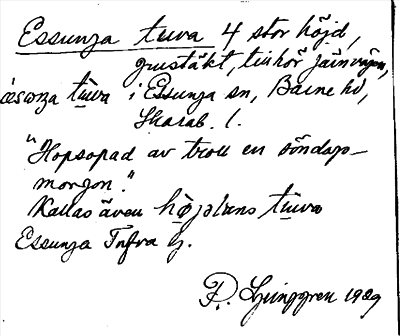 Essunga tuva 4 stor höjd,
grustäkt, tillhör järnvägen,
æsωŋa tùva i Essunga sn, Barne hd,
Skarab. l.
"Hopsopad av troll en söndags-
morgon."
Kallas även hø̀jəlans tùva
Essunga Tofra g.
P. Ljunggren 1929